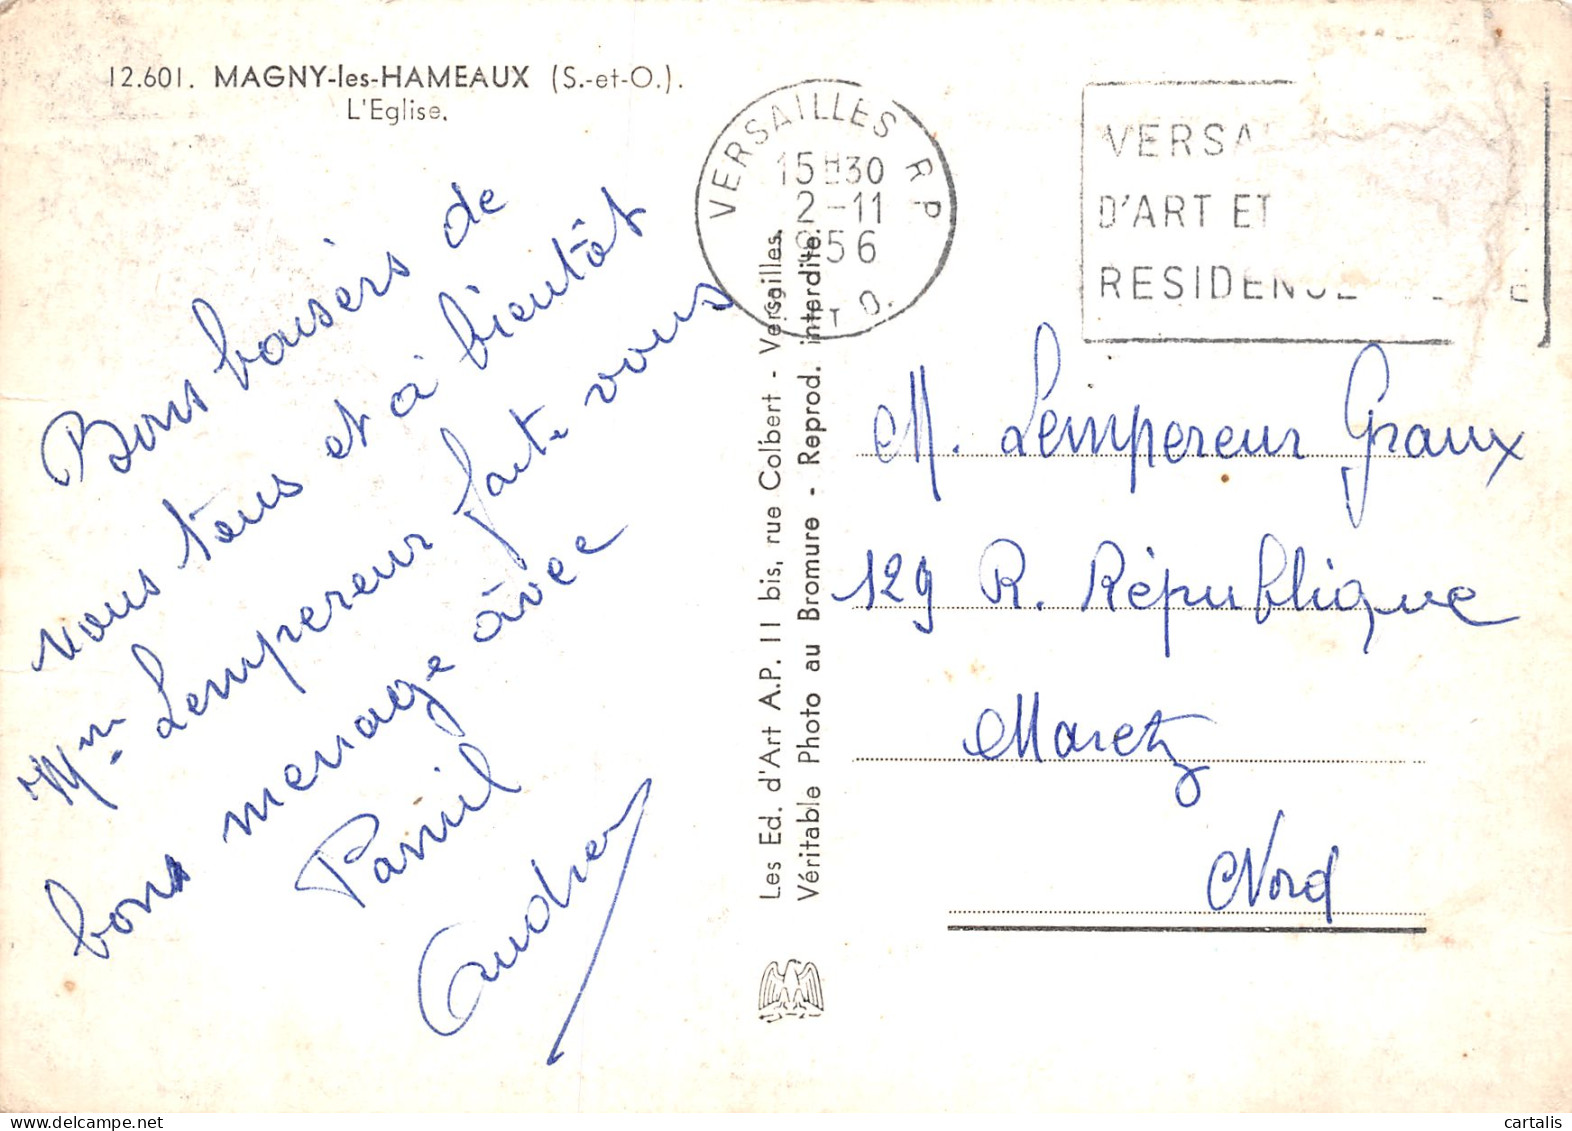 12.601. MAGNY-les-HAMEAUX (S.-et-O.).
L'Eglise.
Bons baisers de
vous tous et à bientôt
Mme Lempereur faite-vous
bons menage avec
Pamil
Andrée
Les Ed. d'Art A.P. 11 bis, rue Colbert - Versailles.
Véritable Photo au Bromure - Reprod. interdite.
VERSAILLES R P
15H30
2-11
1956
ET O.
VERSA
D'ART ET
RESIDENCE
M. Lempereur Graux
129 R. République
Maretz
Nord
cartalis